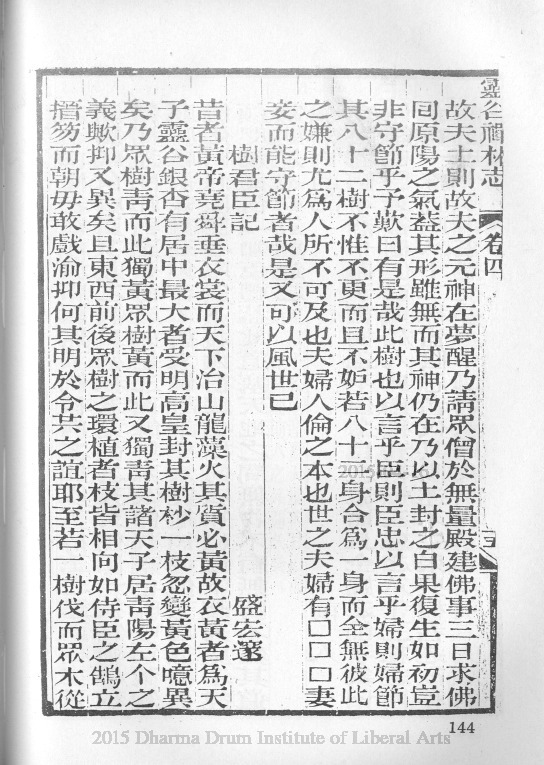 靈谷禪林志
卷四
五
故夫土則故夫之元神在夢醒乃請眾僧於無量殿建佛事三日求佛
囘原陽之氣葢其形雖無而其神仍在乃以土封之白果復生如初豈
非守節乎予歎曰有是哉此樹也以言乎臣則臣忠以言乎婦則婦節
其八十二樹不惟不更而且不妒若八十二身合爲一身而全無彼此
之嫌則尤爲人所不可及也夫婦人倫之本也世之夫婦有□□□妻
妾而能守節者哉是又可以風世已
樹君臣記
盛宏邃
昔者黃帝堯舜垂衣裳而天下治山龍藻火其質必黃故衣黃者爲天
子靈谷銀杏有居中最大者受明高皇封其樹杪一枝忽變黃色噫異
矣乃眾樹靑而此獨黃眾樹黃而此又獨靑其諸天子居靑陽左个之
義歟抑又異矣且東西前後眾樹之環植者枝皆相向如侍臣之鵠立
搢笏而朝毋敢戲渝抑何其明於令共之誼耶至若一樹伐而眾木從
144
2015 Dharma Drum Institute of Liberal Arts